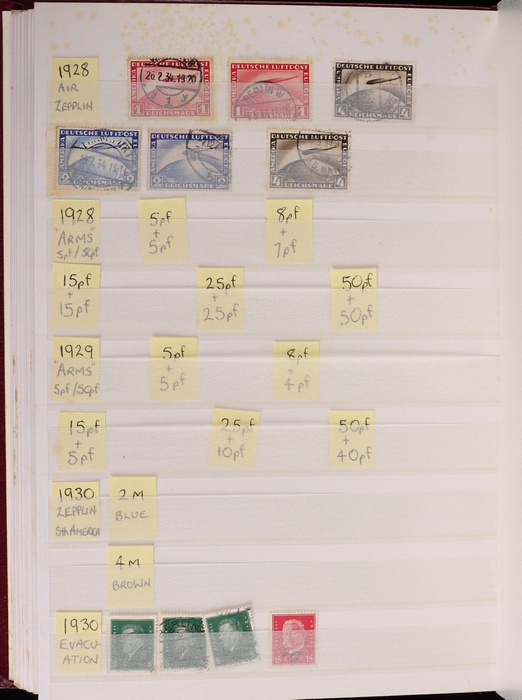 1928
AIR
ZEPPLIN
AMERIKA DEUTSCHE LUFTPOST EUROPA
20.2.34.19 20
1 REICHSMARK 1
AMERIKA DEUTSCHE LUFTPOST EUROPA
BERLIN W
AMERIKA DEUTSCHE LUFTPOST EUROPA
DEUTSCHE LUFTPOST
REICHSMARK
DEUTSCHE LUFTPOST
2 REICHSMARK
AMERIKA DEUTSCHE LUFTPOST EUROPA
4 REICHSMARK 4
1928
"ARMS"
5pf/50pf
5pf
+
5pf
8pf
+
7pf
15pf
+
15pf
25pf
+
25pf
50pf
+
50pf
1929
"ARMS"
5pf/50pf
5pf
+
5pf
8pf
+
4pf
15pf
+
5pf
25pf
+
10pf
50pf
+
40pf
1930
ZEPPLIN
SthAMERICA
2 M
BLUE
4M
BROWN
1930
EVACU-
ATION